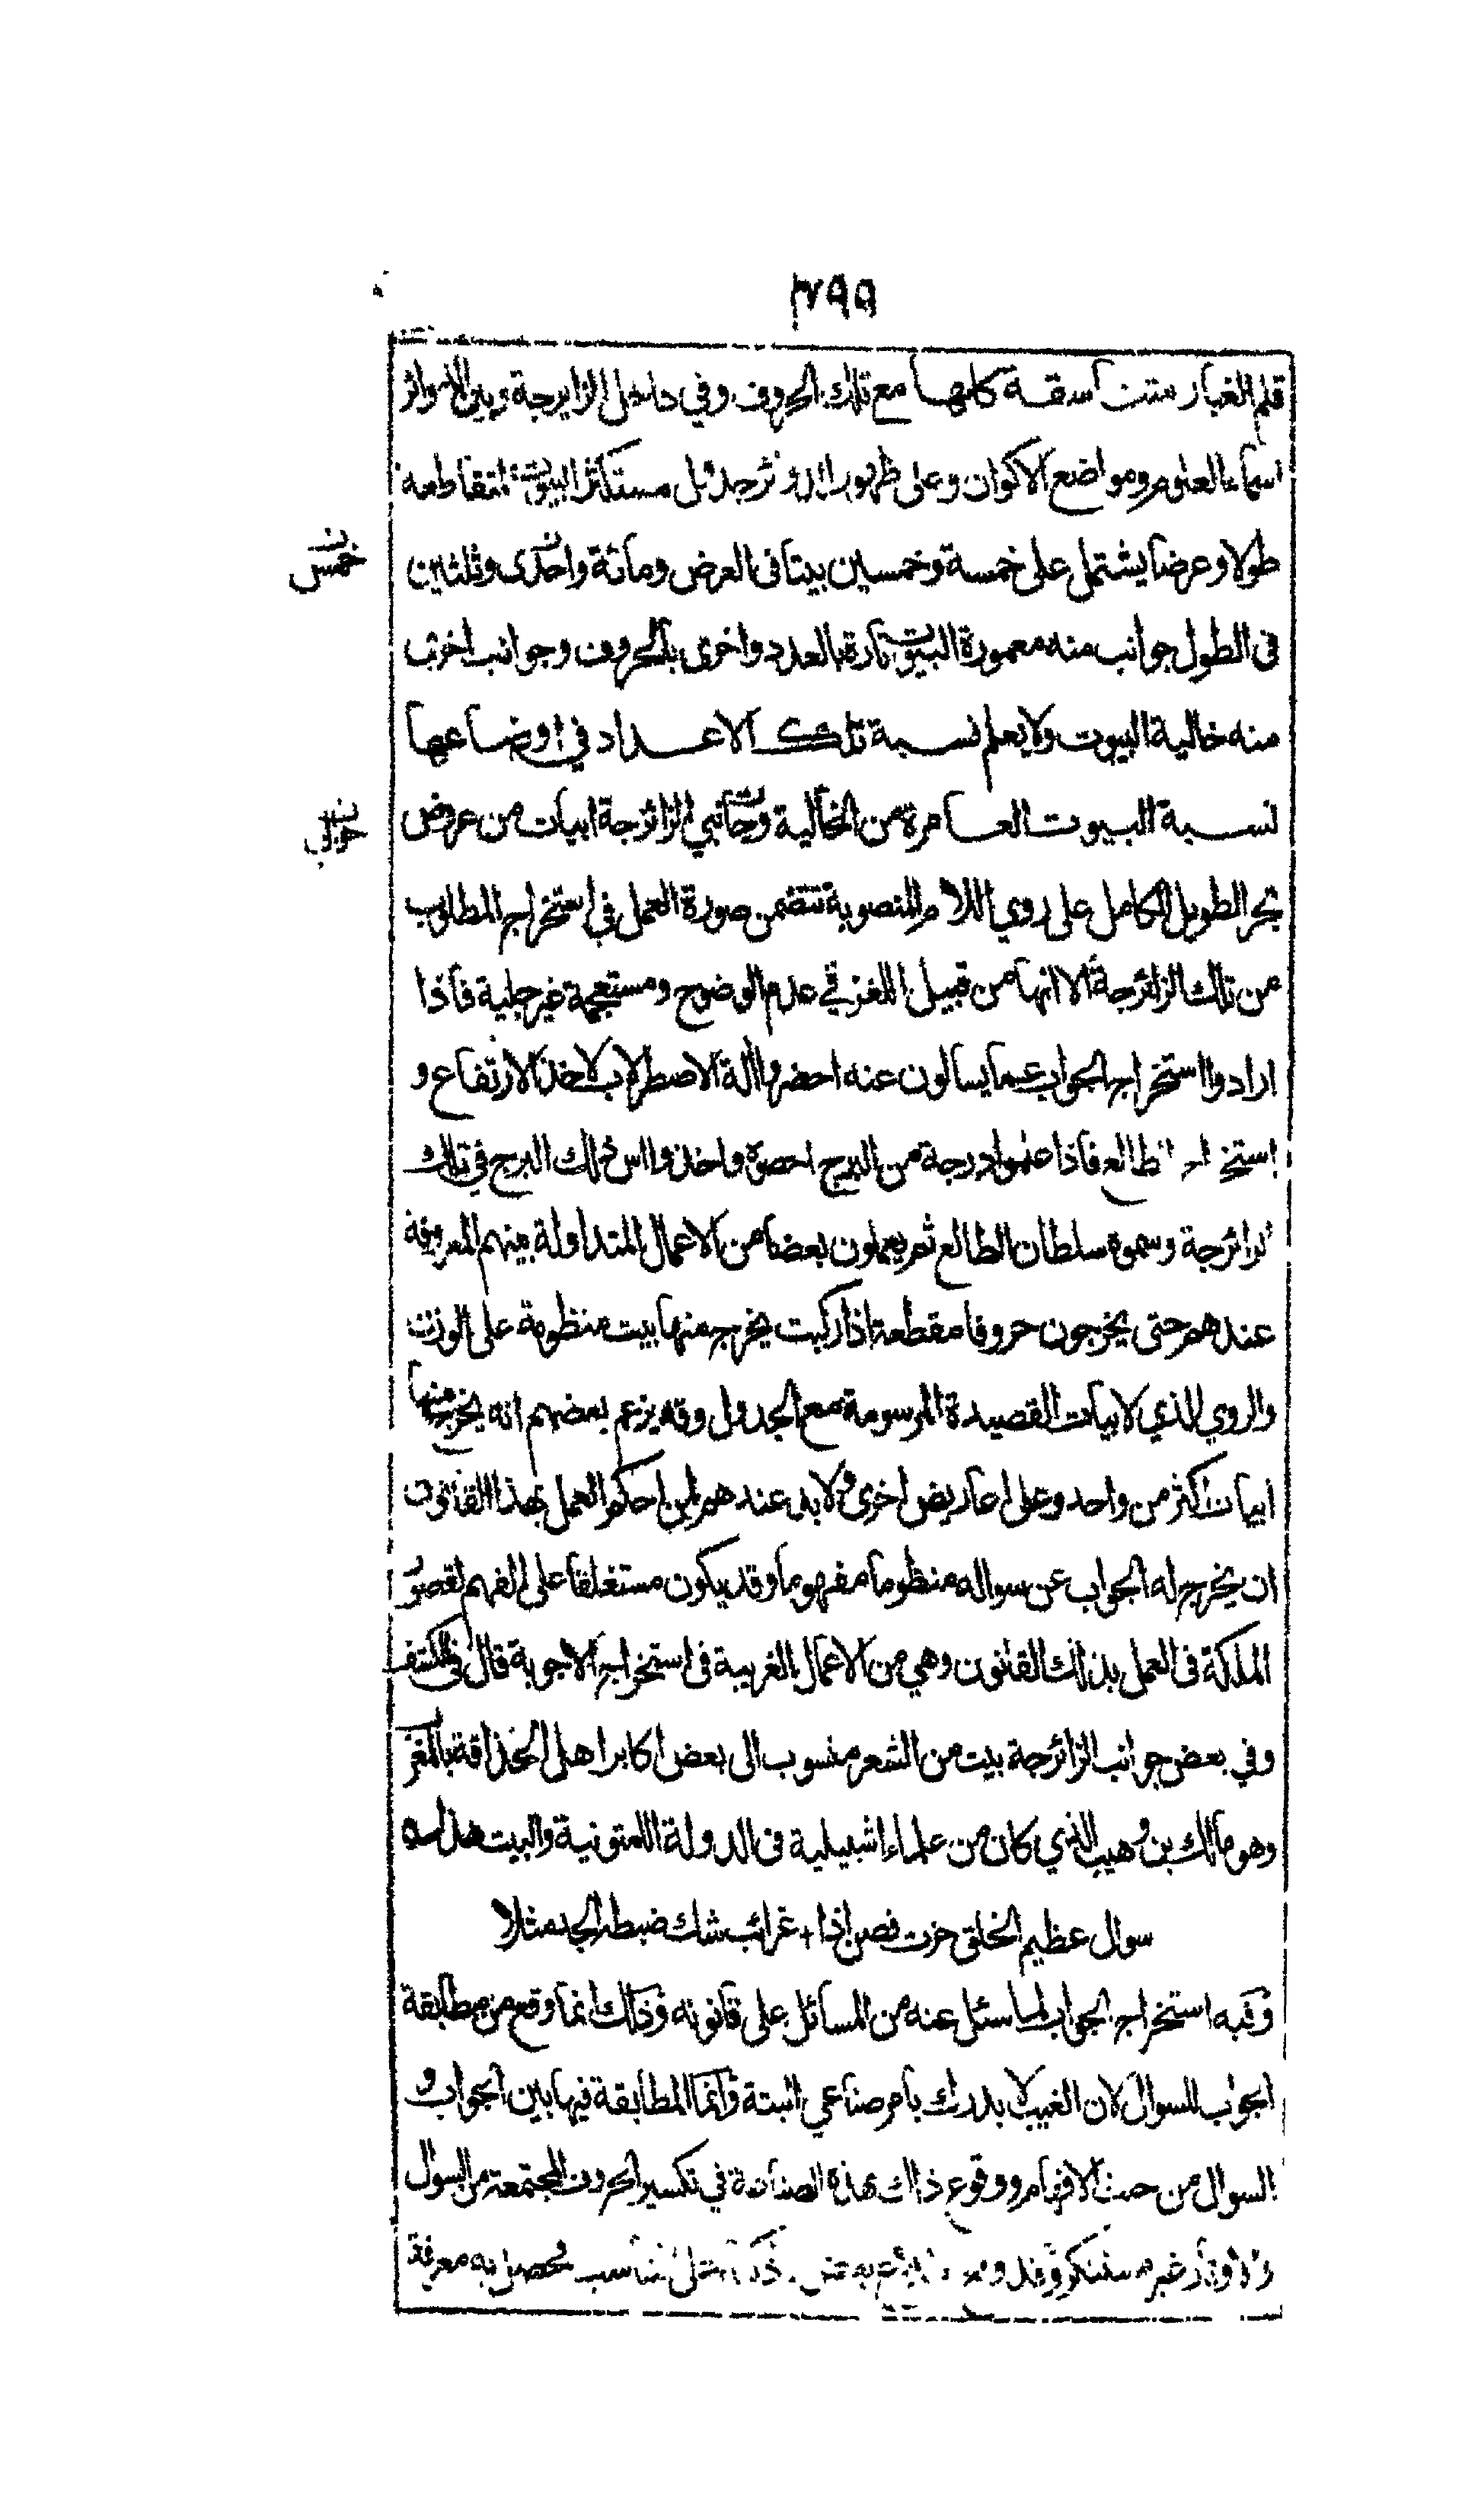 ٢٩٩
قلم الغبار متناسقة كلها مع تلك الحروف وفي داخل الزايرجة وبين الدوائر
اسماء العلوم ومواضع الاكوان وعلى ظهور الدوائر جدول مستكثر البيوت المتقاطعة
طولا وعرضا يشتمل على خمسة وخمسين بيتا فى العرض ومائة واحدى وثلثين
خمس
فى الطول جوانب منه معمورة البيوت تارة بالعدد واخرى بالحروف وجوانب اخرى
منه خالية البيوت ولا يعلم نسبة تلك الاعداد في اوضاعها
نسبة البيوت العامرة من الخالية وجانبي الزائرجة ابيات من عروض
حوالي
بحر الطويل الكامل على روي اللام المنصوبة تتضمن صورة العمل في استخراج المطلوب
من تلك الزائرجة الا انها من قبيل اللغز في عدم الوضوح ومستعجمة غير جلية فاذا
ارادوا استخراج الجواب عما يسالون عنه احضروا الة الاصطرلاب لاخذ الارتفاع و
استخراج الطالع فاذا علموا درجة من البرج احصوه واخذوا اس ذلك البرج في تلك
الزائرجة وسموه سلطان الطالع ثم يعملون بعضا من الاعمال المتداولة بينهم المعروفة
عندهم حتى يخرجون حروفا مقطعة اذا ركبت يخرج منها بيت منظومة على الوزن
والروي الذي لابيات القصيدة المرسومة مع الجدول وقد يزعم بعضهم انه يخرج منها
ابيات اكثر من واحد وعلى اعاريض اخرى ولا بد عندهم لمن احكم العمل بهذا القانون
ان يخرج له الجواب عن سواله منظوما مفهوما وقد يكون مستغلقا على الفهم لقصور
الملكة فى العمل بذلك القانون وهي من الاعمال الغريبة فى استخراج الاجوبة قال فى الكشف
وفي بعض جوانب الزائرجة بيت من الشعر منسوب الى بعض اكابر اهل الحذاقة بالمغرب
وهو مالك بن وهيب الذي كان من علماء اشبيلية فى الدولة اللمتونية والبيت هذا
سوال عظيم الخلق حزت فصن اذا + غرائب شك ضبطه الجد مثلا
وفيه استخراج الجواب لما سئل عنه من المسائل على قانونه وذلك انما وقع من مطابقة
الجواب للسوال لان الغيب لا يدرك بامر صناعي البتة وانما المطابقة فيها بين الجواب و
السوال من حيث الافهام ووقوع ذلك بهذه الصناعة في تكسير الحروف المجتمعة من السوال
والاوتار غير مستنكر وقد وقع بعض على تناسب فحصل به معرفة